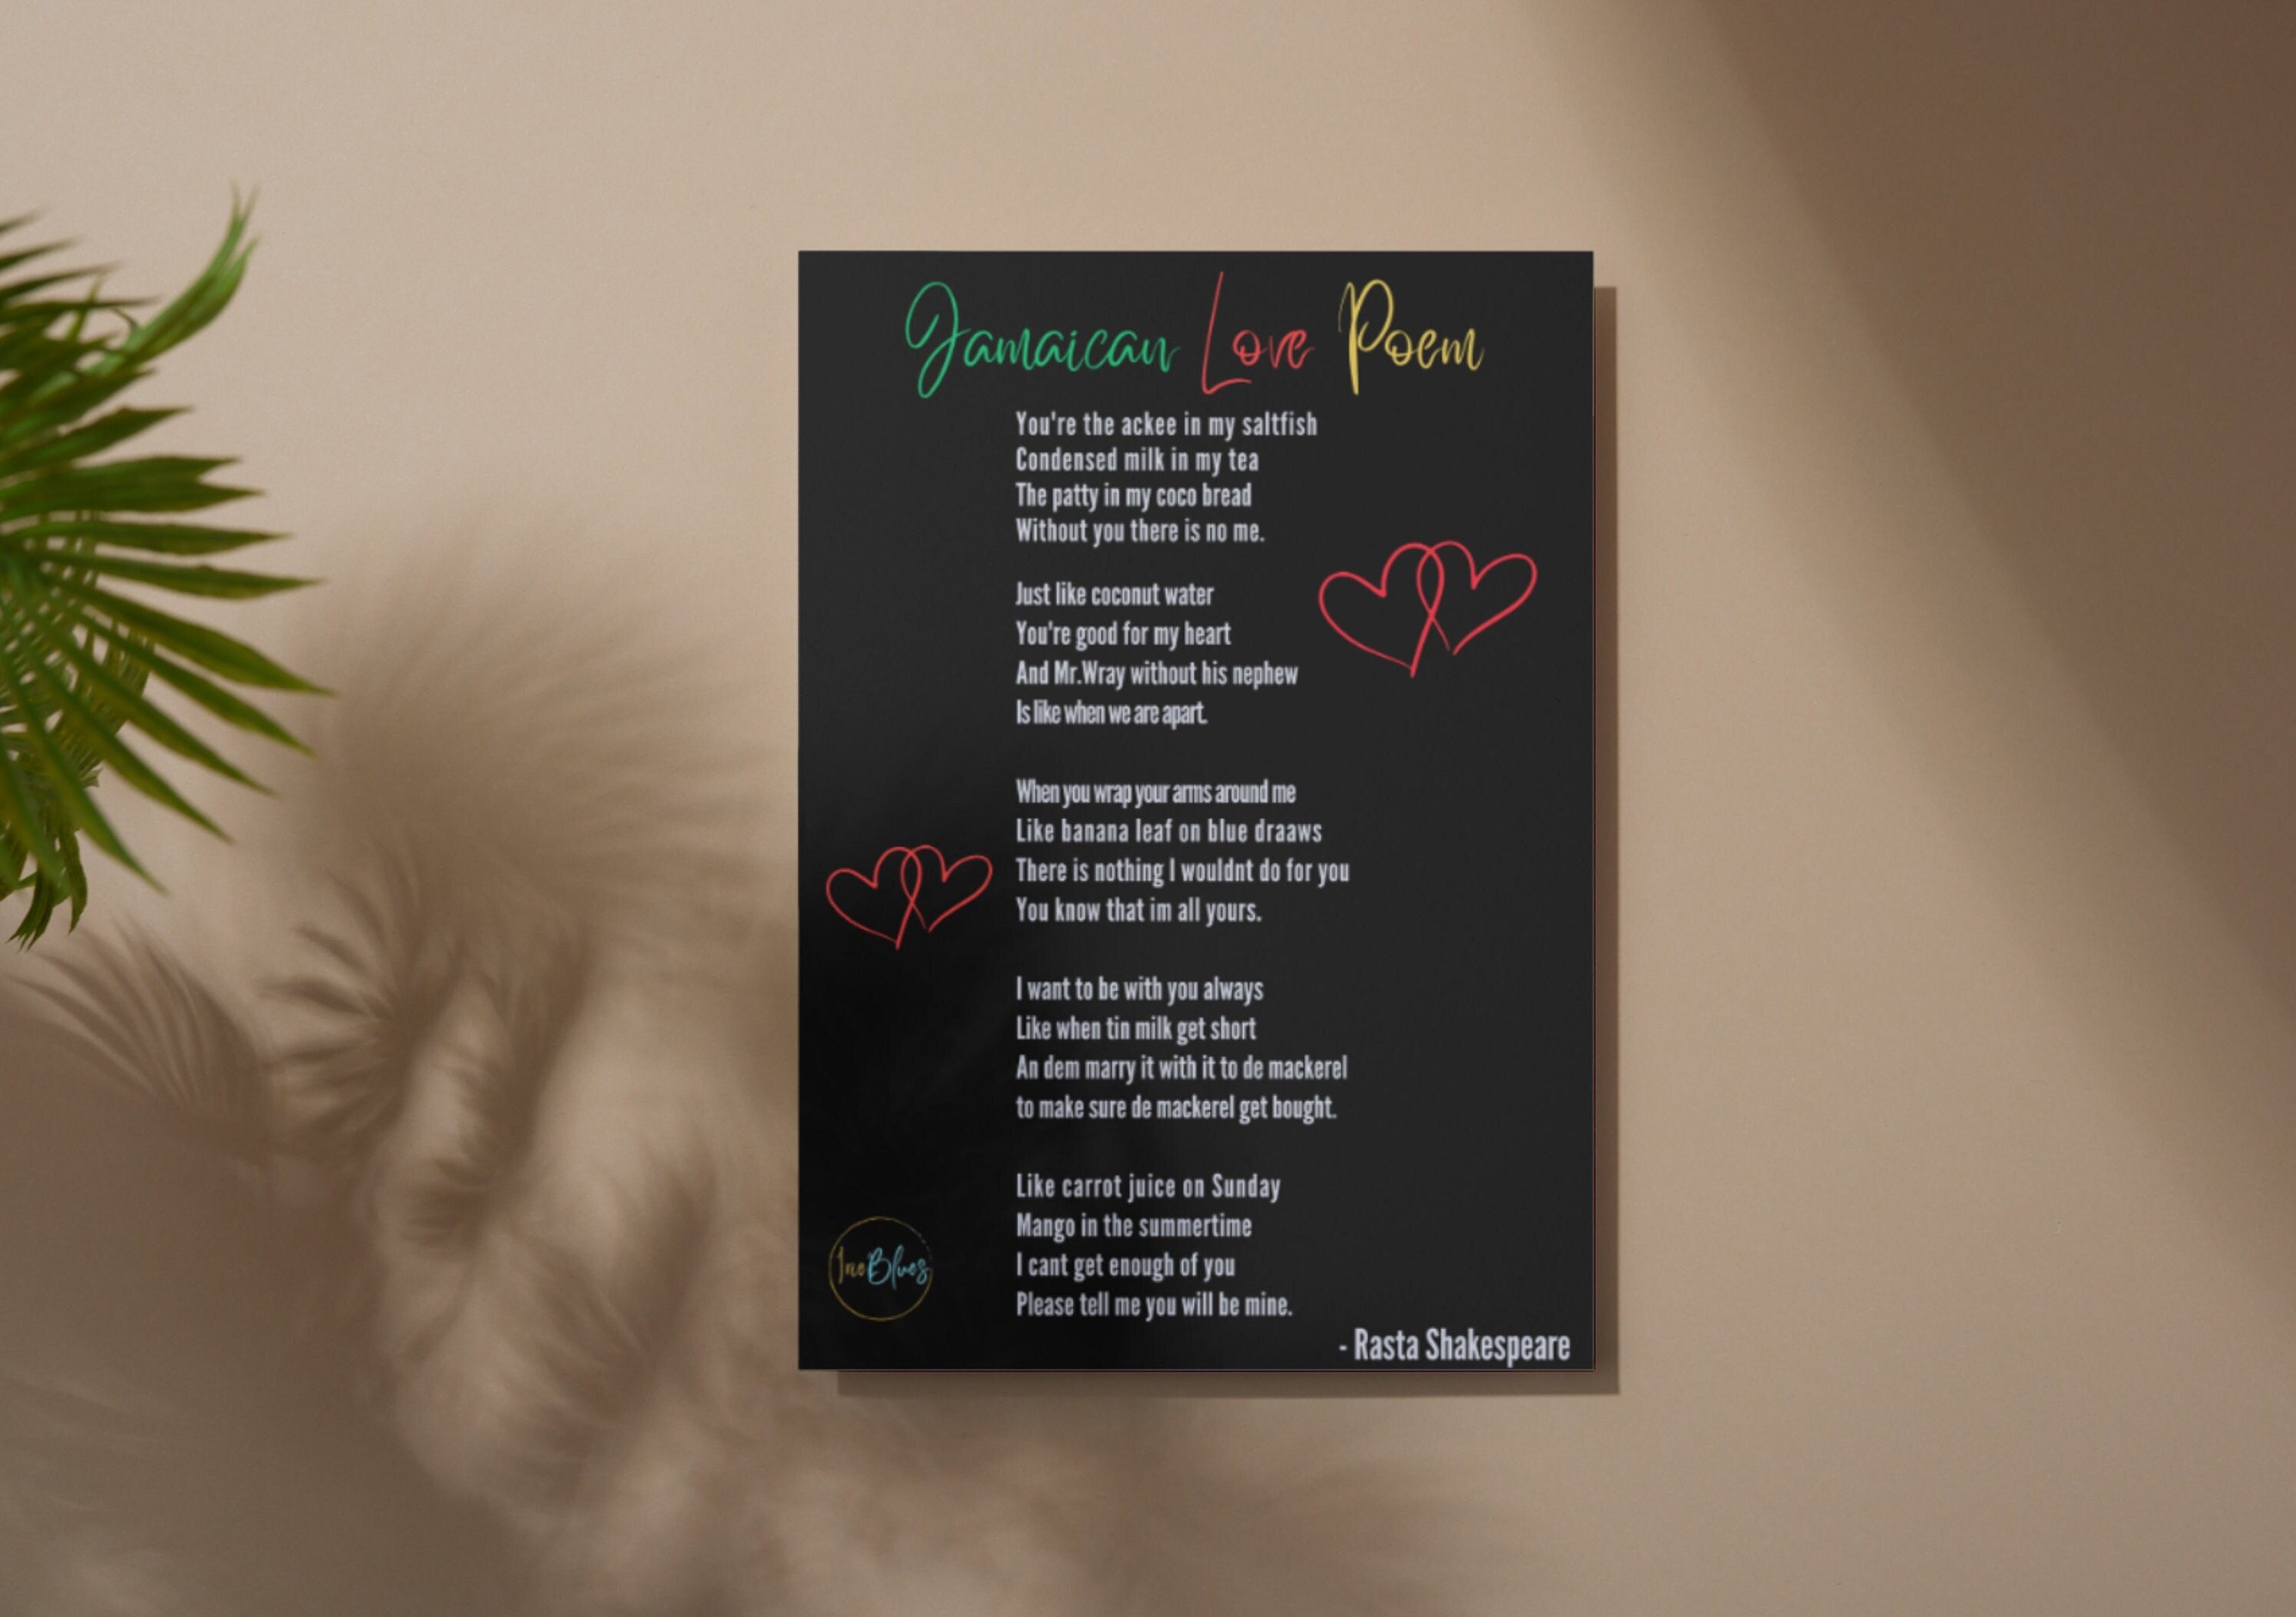 Jamaican Love Poem
You're the ackee in my saltfish
Condensed milk in my tea
The patty in my coco bread
Without you there is no me.
Just like coconut water
You're good for my heart
And Mr.Wray without his nephew
Is like when we are apart.
When you wrap your arms around me
Like banana leaf on blue draaws
There is nothing I wouldnt do for you
You know that im all yours.
I want to be with you always
Like when tin milk get short
An dem marry it with it to de mackerel
to make sure de mackerel get bought.
Like carrot juice on Sunday
Mango in the summertime
I cant get enough of you
Please tell me you will be mine.
- Rasta Shakespeare